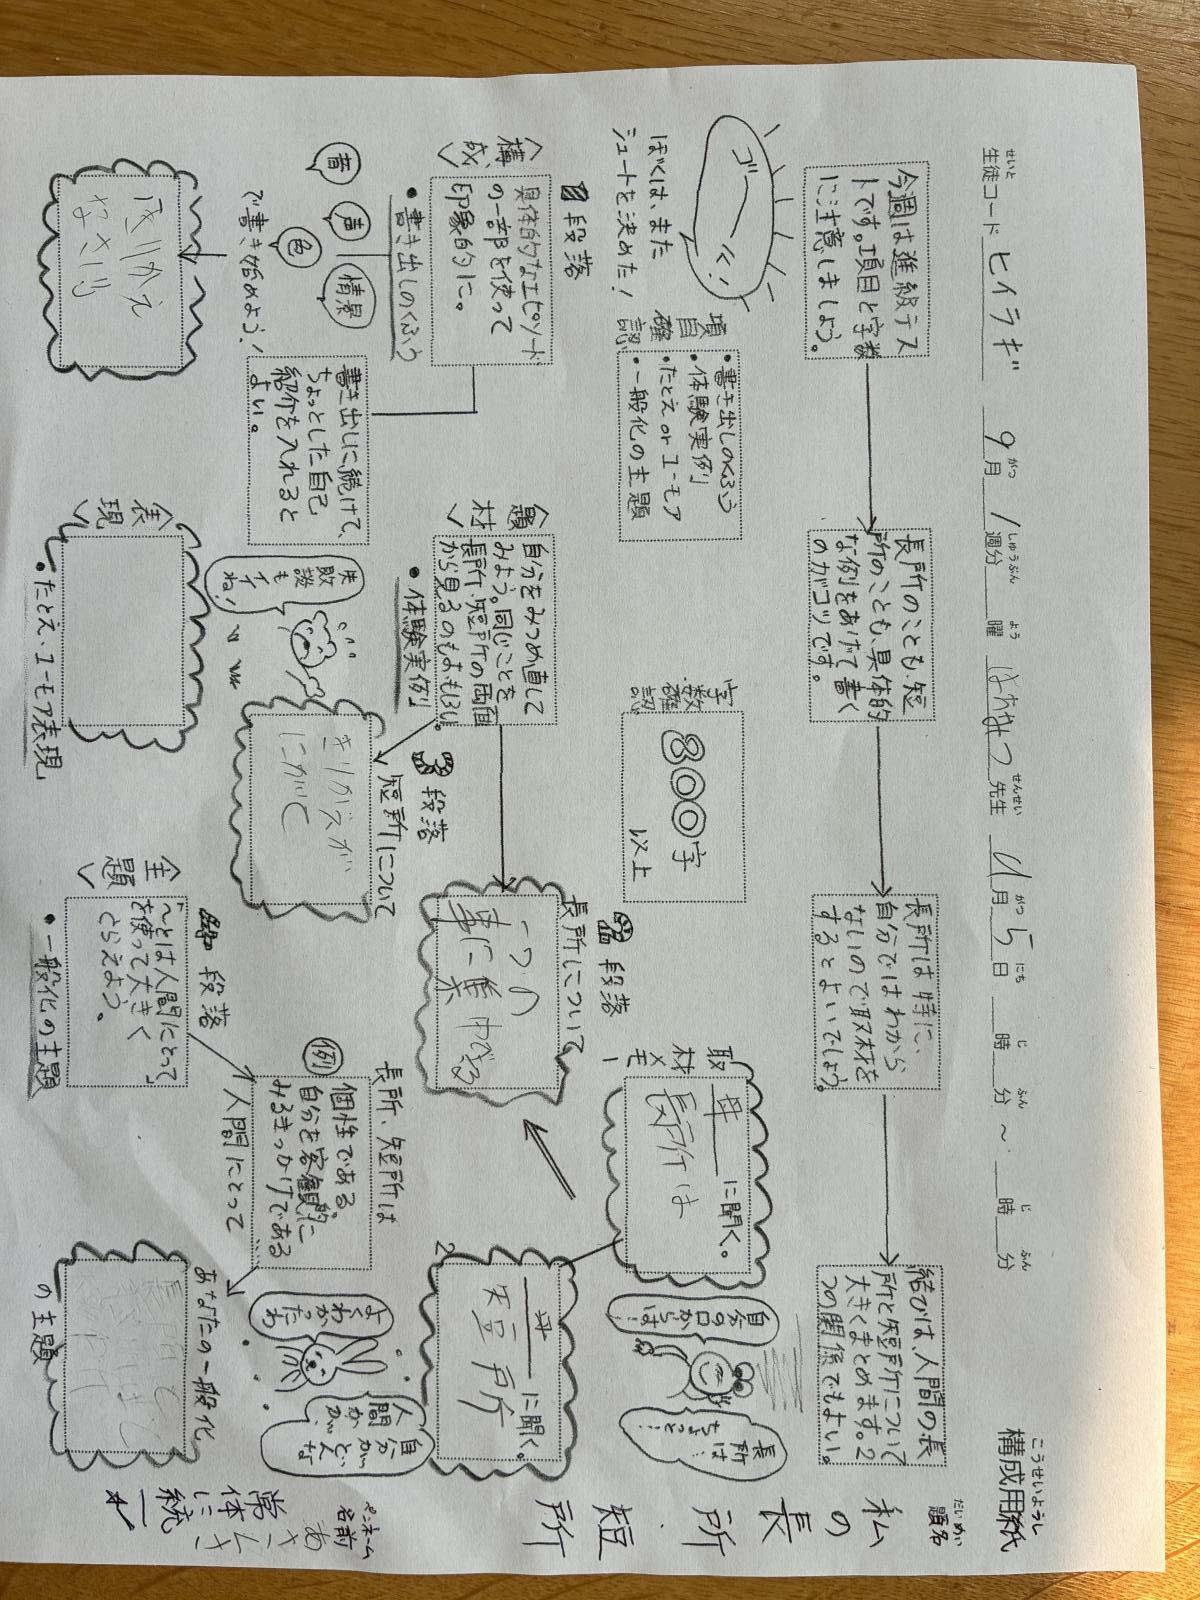 構成用紙
こうせいようし
題名
だいめい
私の長所・短所
ペンネーム
名前
あさムさ
常体に統一
生徒コード ヒイラギ 9月1週分 曜 はちみつ先生 11月5日 時 分～ 時 分
せいと がつ しゅうぶん よう せんせい がつ にち じ ふん じ ふん
今週は進級テス
トです。項目と字数
に注意しましょう。
長所のことも、短
所のことも、具体的
な例をあげて書く
のがコツです。
長所は特に、
自分ではわから
ないので取材を
するとよいでしょう。
結びは、人間の長
所と短所について
大きくまとめます。2
つの関係でもよい。
ゴーール!
ぼくは、また
シュートを決めた!
項目確認
・書き出しのくふう
・体験実例
・たとえ or ユーモア
・一般化の主題
字数確認
800字
以上
取材メモ
母に聞く。
長所は
自分の口からは
長所は…
ちょっと…
母に聞く。
短所
段落
<構成>
具体的なエピソード
の一部を使って
印象的に。
・書き出しのくふう
音
声
色
情景
で書き始めよう!
きりかえ
なさい
書き出しに続けて、
ちょっとした自己
紹介を入れると
よい。
<題材>
自分をみつめ直して
みよう。同じことを
長所、短所の両面
から見るのもおもしろい。
・体験実例
段落
長所について
一つの
事に集
中できる
段落
短所について
きりかえが
にがて
失敗談もイイね!
<表現>
・たとえ・ユーモア表現
段落
<主題>
「〜とは人間にとって」
を使って大きく
とらえよう。
・一般化の主題
人間にとって
長所、短所は
例
個性である。
自分を客観的に
みるきっかけである
…
よくわかったわ
自分がどんな
人間かが、
あなたの一般化
の主題